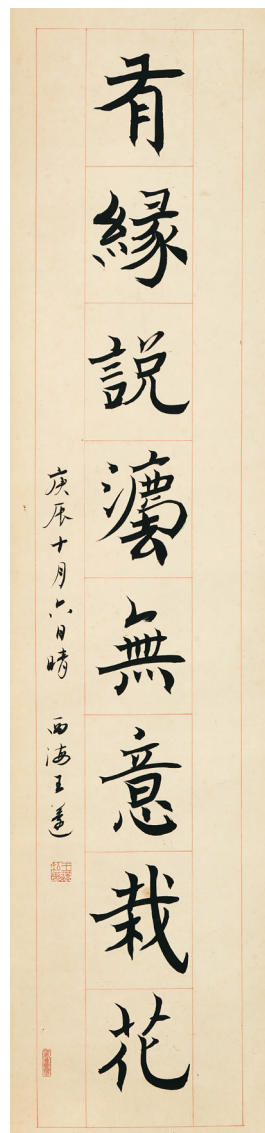 有緣說灋無意栽花
庚辰十月六日晴 西海王蘧